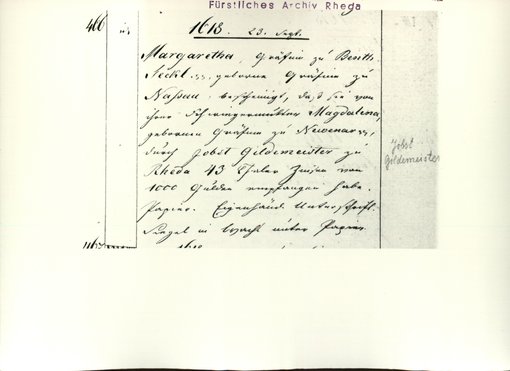 Fürstliches Archiv Rheda
466
1618. 23. Sept.
Margaretha, Gräfin zu Benth.
Teckl. geborne Gräfin zu
Naßau, bescheinigt, daß sie von
ihrer Schwiegermutter Magdalena,
gebornen Gräfin zu Newenar,
durch Jobst Geldemeister zu
Rheda 43 Thaler Zinsen von
1000 Gulden empfangen habe.
Papier. Eigenhänd. Unterschrift.
Siegel in Wachs unter Papier
Jobst
Geldemeister
467
1618